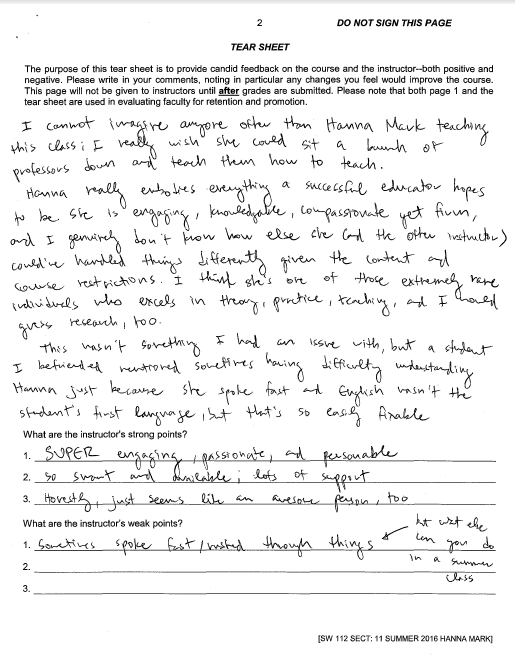 2
DO NOT SIGN THIS PAGE
TEAR SHEET
The purpose of this tear sheet is to provide candid feedback on the course and the instructor--both positive and
negative. Please write in your comments, noting in particular any changes you feel would improve the course.
This page will not be given to instructors until after grades are submitted. Please note that both page 1 and the
tear sheet are used in evaluating faculty for retention and promotion.
I cannot imagine anyone other than Hanna Mark teaching
this class; I really wish she could sit a bunch of
professors down and teach them how to teach.
Hanna really embodies everything a successful educator hopes
to be. She is engaging, knowledgable, compassionate yet firm,
and I genuinely don't know how else she (and the other instructor)
could've handled things differently given the content and
course restrictions. I think she's one of those extremely rare
individuals who excels in theory, practice, teaching, and I would
guess research, too.
This wasn't something I had an issue with, but a student
I befriended mentioned sometimes having difficulty understanding
Hanna just because she spoke fast and English wasn't the
student's first language, but that's so easily fixable
What are the instructor's strong points?
1. SUPER engaging, passionate, and personable
2. so smart and available; lots of support
3. Honestly, just seems like an awesome person, too
What are the instructor's weak points?
1. Sometimes spoke fast/rushed through things
but what else
can you do
in a summer
class
2.
3.
[SW 112 SECT: 11 SUMMER 2016 HANNA MARK]